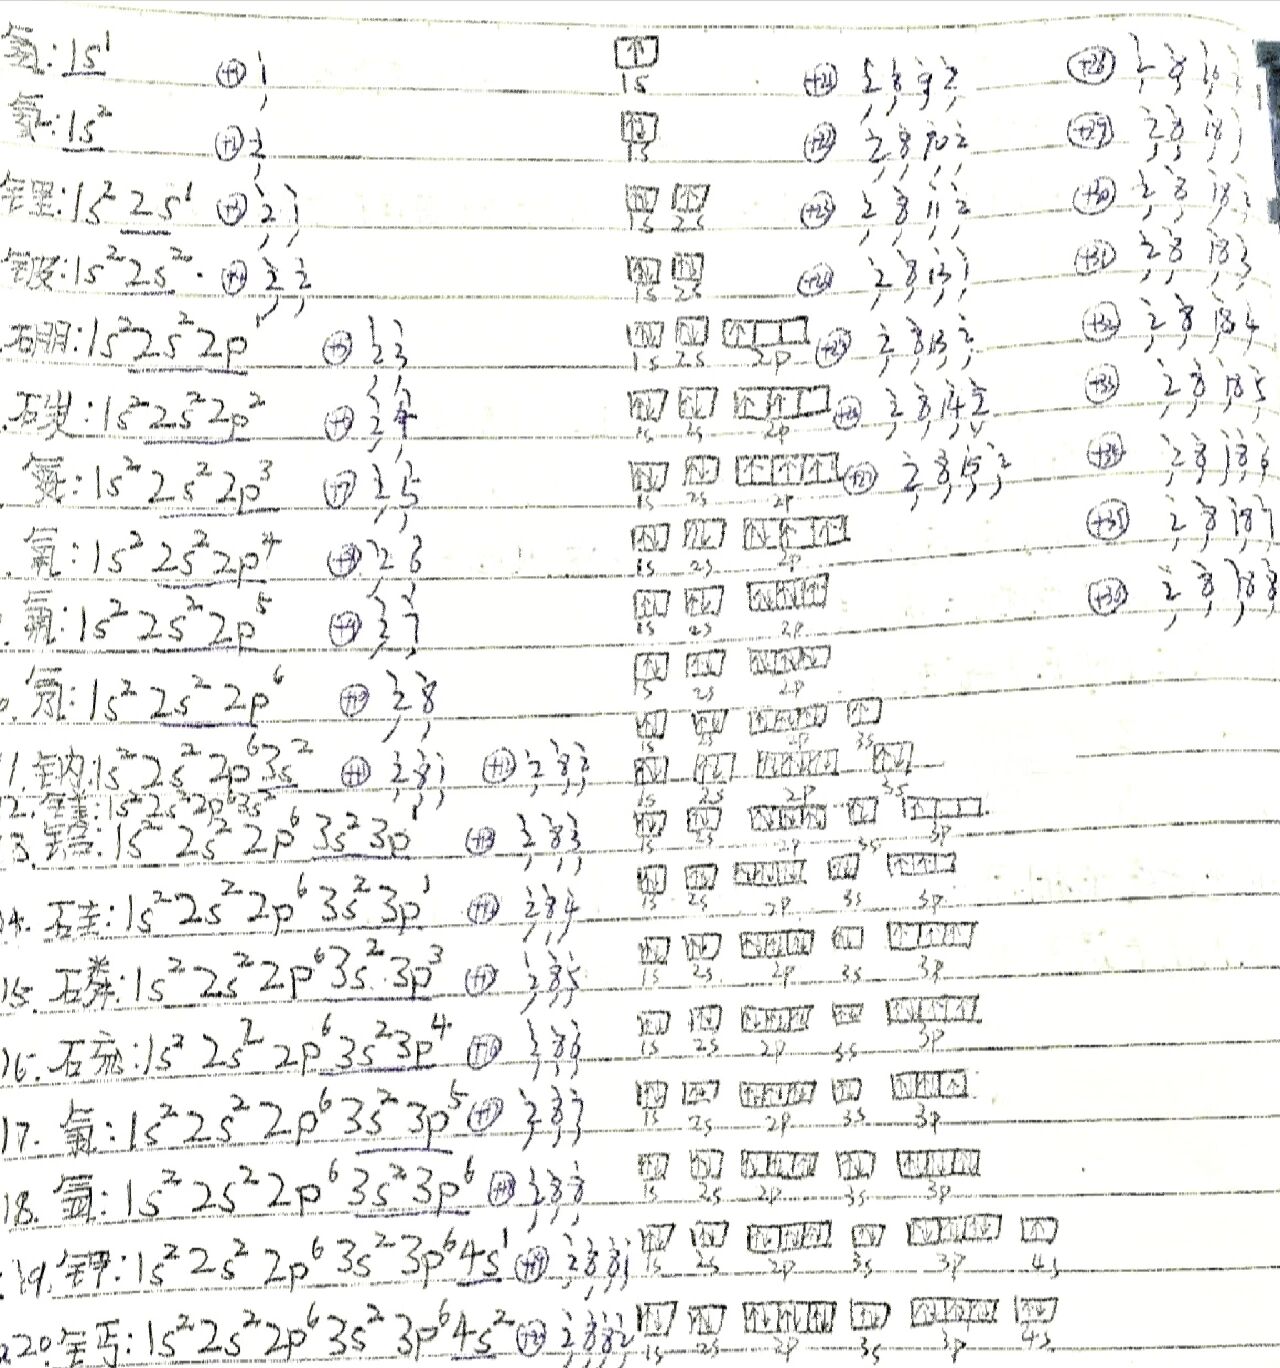 氢: 1s¹ +1 1 ↑ 1s +21 2 8 9 2 +28 2 8 16 2
氦: 1s² +2 2 ↑↓ 1s +22 2 8 10 2 +29 2 8 18 1
锂: 1s² 2s¹ +3 2 1 1s 2s +23 2 8 11 2 +30 2 8 18 2
铍: 1s² 2s² +4 2 2 1s 2s +24 2 8 13 1 +31 2 8 18 3
硼: 1s² 2s² 2p¹ +5 2 3 1s 2s 2p +25 2 8 13 2 +32 2 8 18 4
碳: 1s² 2s² 2p² +6 2 4 1s 2s 2p +26 2 8 14 2 +33 2 8 18 5
氮: 1s² 2s² 2p³ +7 2 5 1s 2s 2p +27 2 8 15 2 +34 2 8 18 6
氧: 1s² 2s² 2p⁴ +8 2 6 1s 2s 2p +35 2 8 18 7
氟: 1s² 2s² 2p⁵ +9 2 7 1s 2s 2p +36 2 8 18 8
氖: 1s² 2s² 2p⁶ 2 8 1s 2s 2p
1s 2s 2p 3s
11. 钠: 1s² 2s² 2p⁶ 3s² +11 2 8 1 2 8 2 1s 2s 2p 3s
12. 镁: 1s² 2s² 2p⁶ 3s²
13. 铝: 1s² 2s² 2p⁶ 3s² 3p¹ +13 2 8 3 1s 2s 2p 3s 3p
14. 硅: 1s² 2s² 2p⁶ 3s² 3p 2 8 4 1s 2s 2p 3s 3p
15. 磷: 1s² 2s² 2p⁶ 3s² 3p³ 2 8 5 1s 2s 2p 3s 3p
16. 硫: 1s² 2s² 2p⁶ 3s² 3p⁴ 2 8 6 1s 2s 2p 3s 3p
17. 氯: 1s² 2s² 2p⁶ 3s² 3p⁵ +17 2 8 7 1s 2s 2p 3s 3p
18. 氩: 1s² 2s² 2p⁶ 3s² 3p⁶ +18 2 8 8 1s 2s 2p 3s 3p
19. 钾: 1s² 2s² 2p⁶ 3s² 3p⁶ 4s¹ +19 2 8 8 1 1s 2s 2p 3s 3p 4s
20. 钙: 1s² 2s² 2p⁶ 3s² 3p⁶ 4s² 2 8 8 2 1s 2s 2p 3s 3p 4s